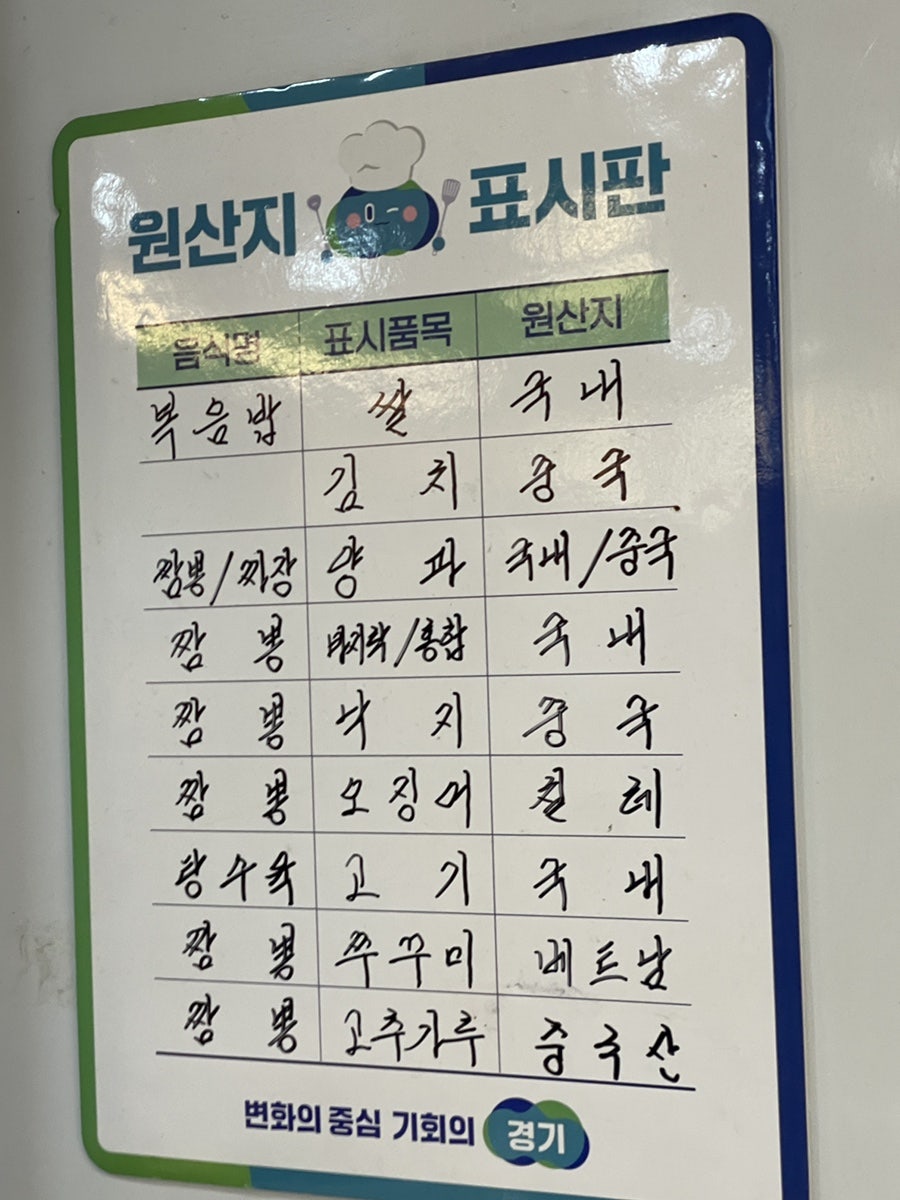 원산지 표시판
음식명 표시품목 원산지
복음밥 쌀 국내
김치 중국
짬뽕/짜장 양파 국내/중국
짬뽕 바지락/홍합 국내
짬뽕 낙지 중국
짬뽕 오징어 칠레
탕수육 고기 국내
짬뽕 쭈꾸미 베트남
짬뽕 고추가루 중국산
변화의 중심 기회의 경기